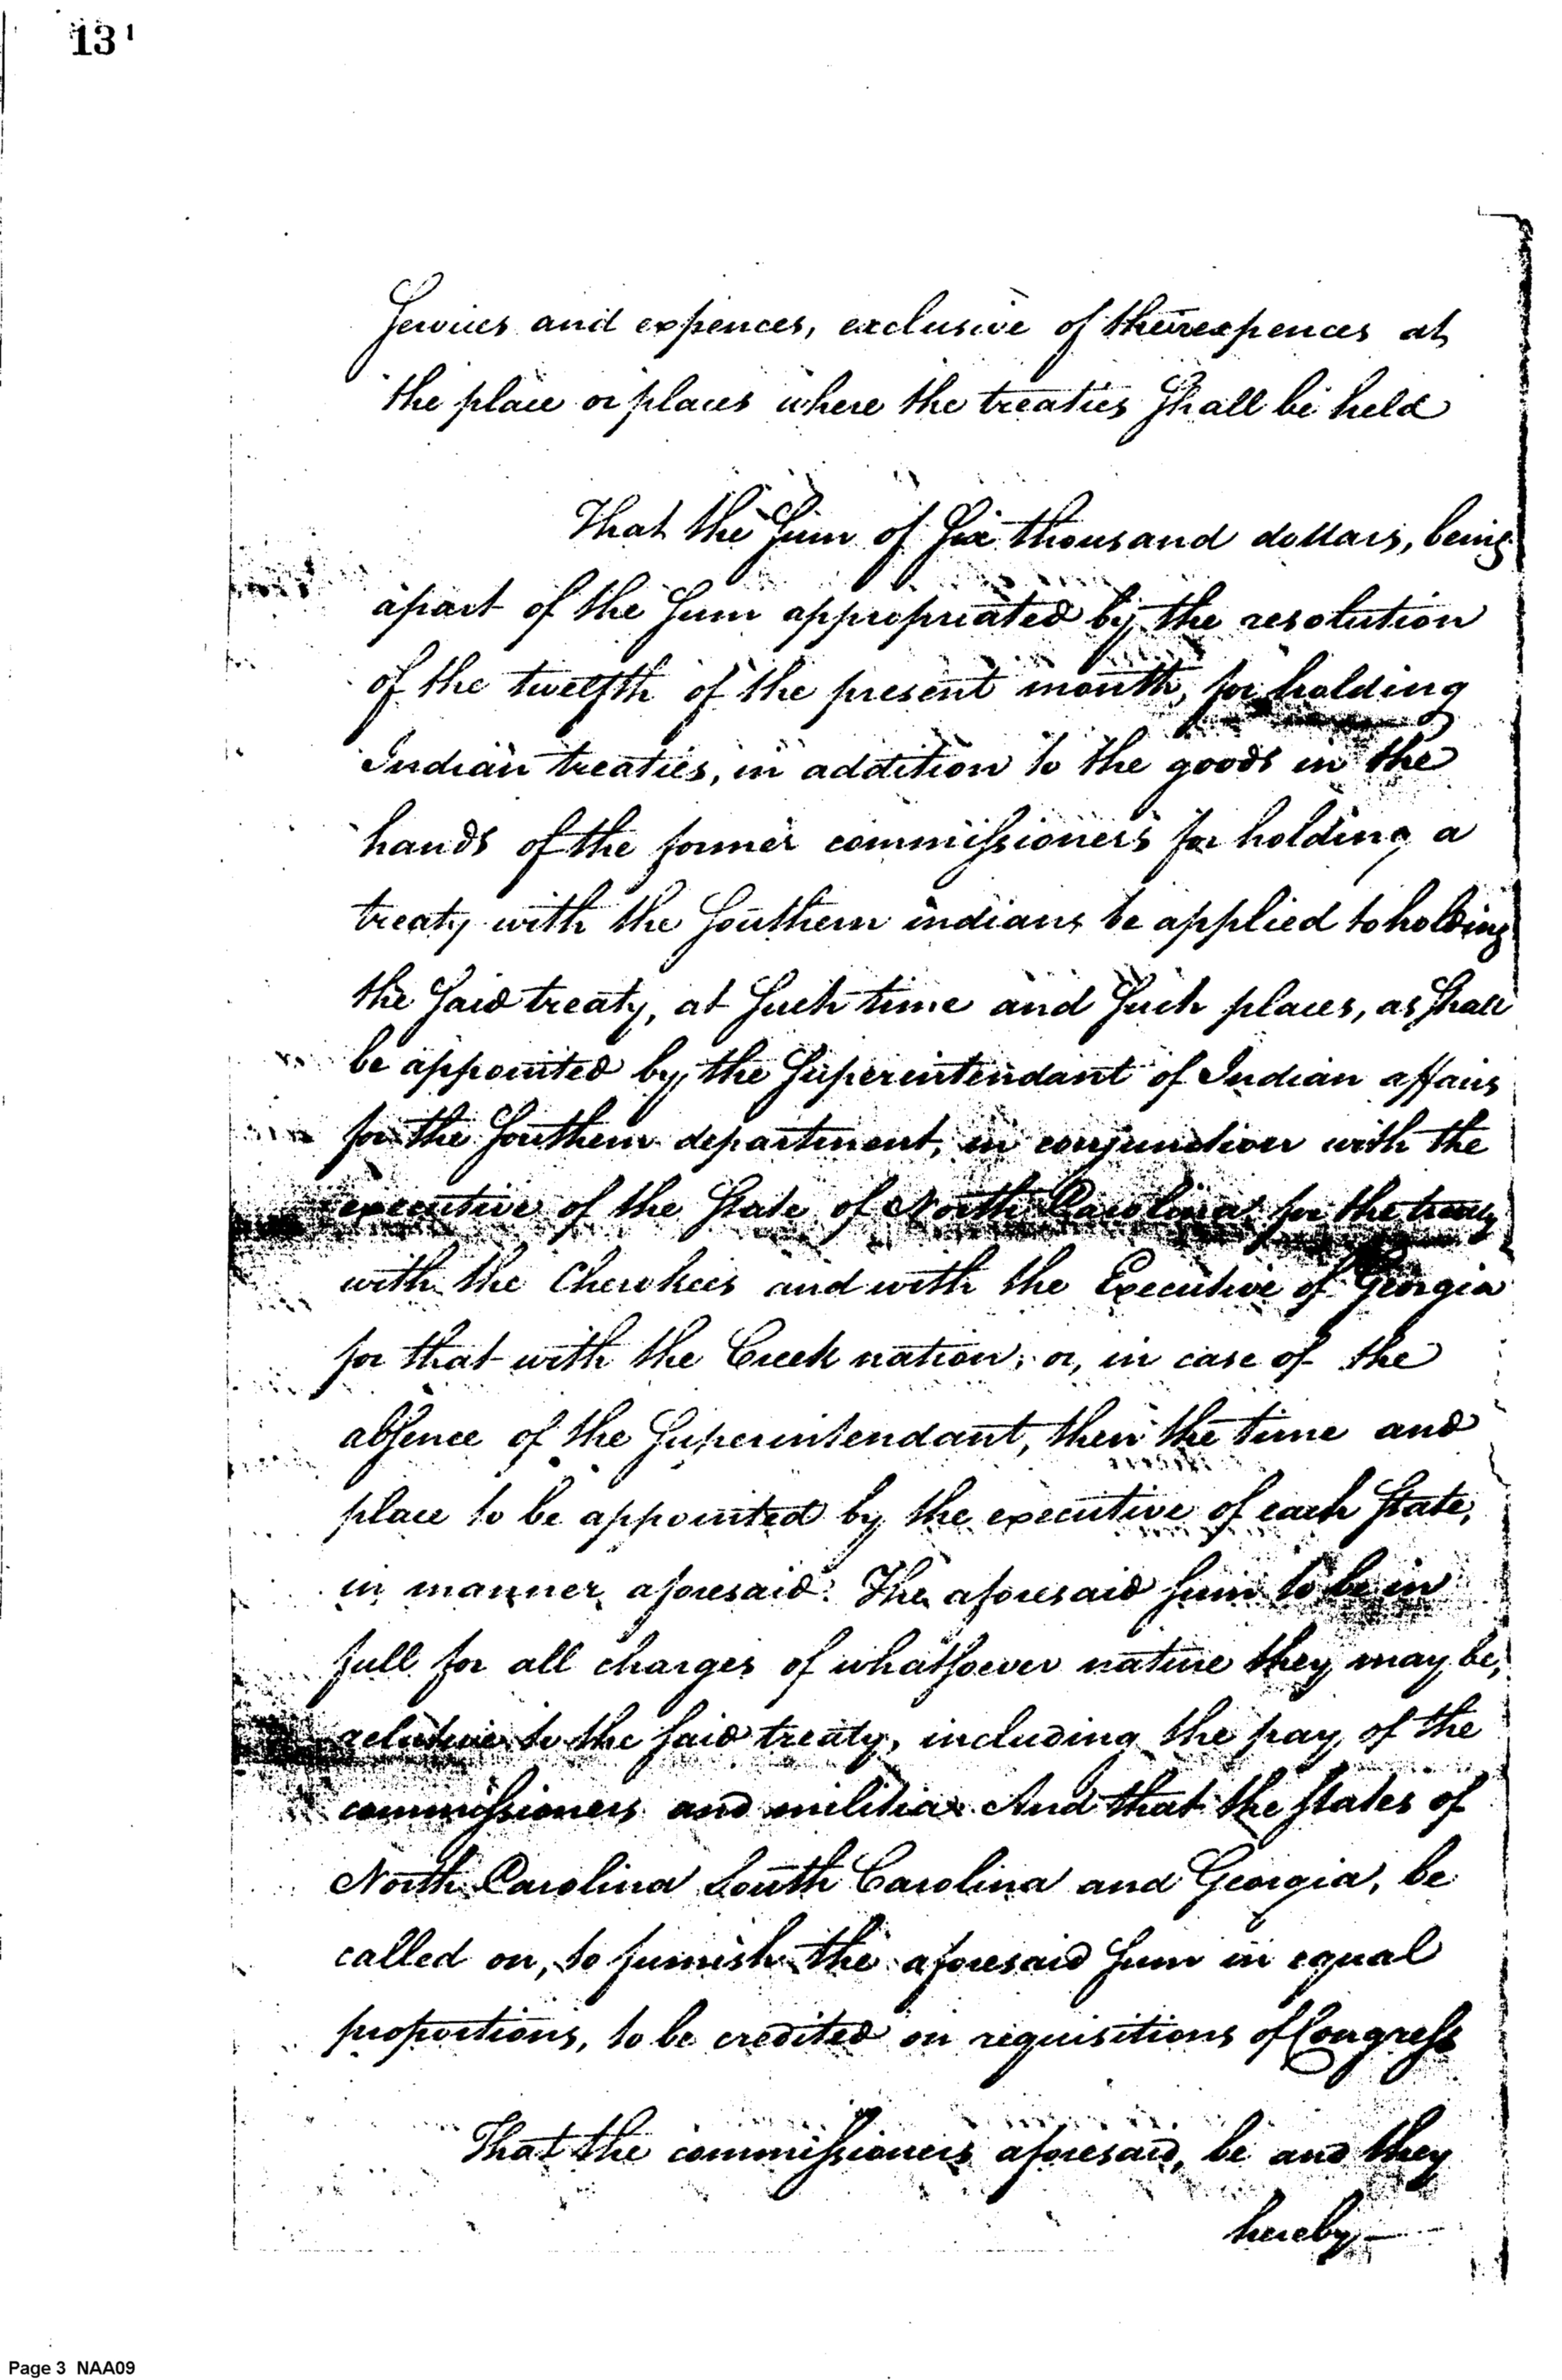 131
Services and expences, exclusive of their expences at
the place or places where the treaties Shall be held
That the Sum of Six thousand dollars, being
apart of the Sum appropriated by the resolution
of the twelfth of the present month, for holding
Indian treaties, in addition to the goods in the
hands of the former commissioners for holding a
treaty with the Southern indians be applied to holding
the Said treaty, at Such time and Such places, as Shall
be appointed by the Superintendant of Indian affairs
for the Southern department, in conjunction with the
executive of the State of North Carolina for the treaty
with the Cherokees and with the Executive of Georgia
for that with the Creek nation; or, in case of the
absence of the Superintendant, then the time and
place to be appointed by the executive of each State,
in manner aforesaid. The aforesaid Sum to be in
full for all charges of whatsoever nature they may be,
relative to the Said treaty, including the pay of the
commissioners and militia. And that the States of
North Carolina South Carolina and Georgia, be
called on, to furnish the aforesaid Sum in equal
proportions, to be credited on requisitions of Congress
That the commissioners aforesaid, be and they
hereby
Page 3 NAA09